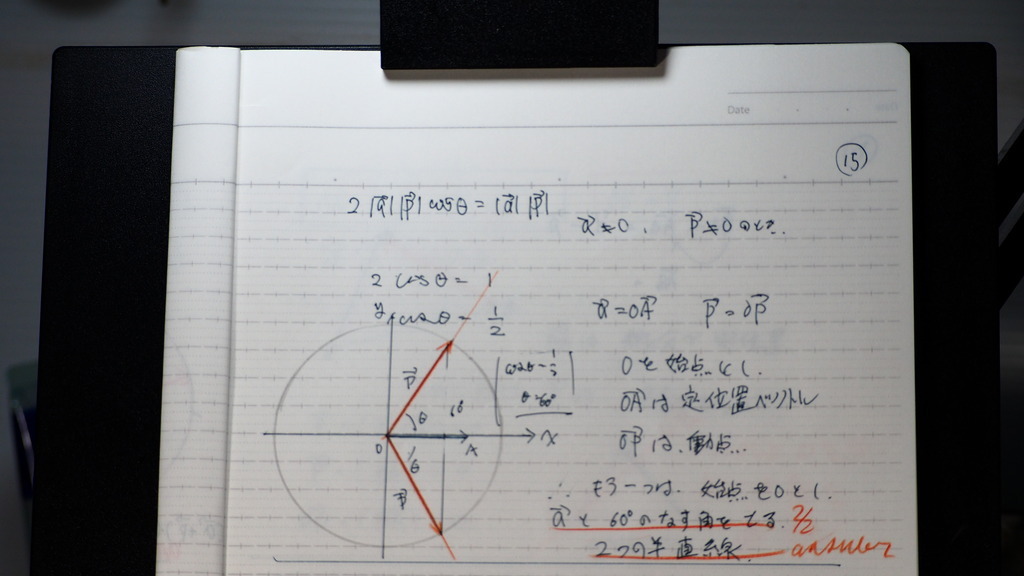 Date
15
2|a⃗||p⃗| cosθ = |a⃗||p⃗|
a⃗ ≠ 0, p⃗ ≠ 0 のとき.
2 cosθ = 1
y cosθ = 1/2
a⃗ = OA⃗ p⃗ = OP⃗
cosθ = 1/2
θ = 60°
Oを始点とし.
OA⃗は定位置ベクトル
OP⃗は.動点...
p⃗ θ 60°
O A x
θ
p⃗
∴ もう一つは.始点をOとし.
a⃗と60°のなす角をとる. 2/2
2つの半直線 answer